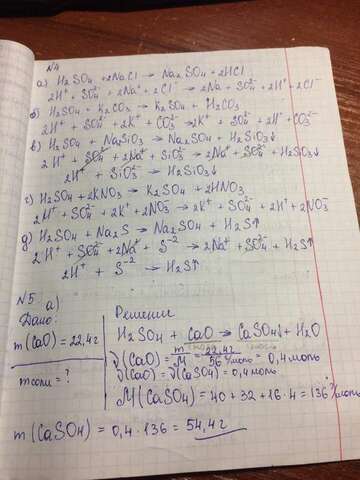 №4
а) H₂SO₄ + 2NaCl → Na₂SO₄ + 2HCl
2H⁺ + SO₄²⁻ + 2Na⁺ + 2Cl⁻ → 2Na⁺ + SO₄²⁻ + 2H⁺ + 2Cl⁻
б) H₂SO₄ + K₂CO₃ → K₂SO₄ + H₂CO₃
2H⁺ + SO₄²⁻ + 2K⁺ + CO₃²⁻ → K⁺ + SO₄²⁻ + 2H⁺ + CO₃²⁻
в) H₂SO₄ + Na₂SiO₃ → Na₂SO₄ + H₂SiO₃↓
2H⁺ + SO₄²⁻ + 2Na⁺ + SiO₃²⁻ → 2Na⁺ + SO₄²⁻ + H₂SiO₃↓
2H⁺ + SiO₃²⁻ → H₂SiO₃↓
г) H₂SO₄ + 2KNO₃ → K₂SO₄ + 2HNO₃
2H⁺ + SO₄²⁻ + 2K⁺ + 2NO₃⁻ → 2K⁺ + SO₄²⁻ + 2H⁺ + 2NO₃⁻
д) H₂SO₄ + Na₂S → Na₂SO₄ + H₂S↑
2H⁺ + SO₄²⁻ + 2Na⁺ + S⁻² → 2Na⁺ + SO₄²⁻ + H₂S↑
2H⁺ + S⁻² → H₂S↑
№5 а)
Дано: Решение
H₂SO₄ + CaO → CaSO₄↓ + H₂O
m(CaO) = 22,4г ν(CaO) = m/M = 22,4г/56 г/моль = 0,4 моль
ν(CaO) = ν(CaSO₄) = 0,4 моль
m соли = ? M(CaSO₄) = 40 + 32 + 16·4 = 136 г/моль
m(CaSO₄) = 0,4 · 136 = 54,4г